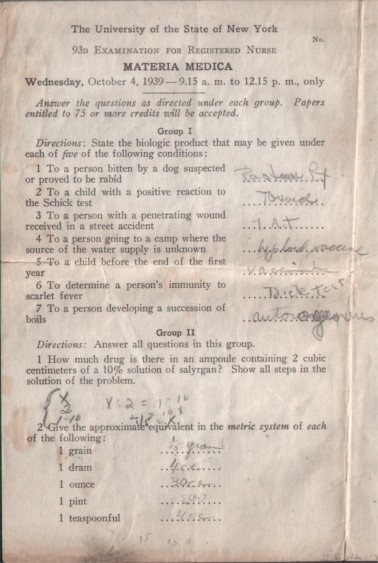 The University of the State of New York
No.
93D EXAMINATION FOR REGISTERED NURSE
MATERIA MEDICA
Wednesday, October 4, 1939—9.15 a. m. to 12.15 p. m., only
Answer the questions as directed under each group. Papers
entitled to 75 or more credits will be accepted.
Group I
Directions: State the biologic product that may be given under
each of five of the following conditions:
1 To a person bitten by a dog suspected
or proved to be rabid
2 To a child with a positive reaction to
the Schick test
3 To a person with a penetrating wound
received in a street accident T.A.T.
4 To a person going to a camp where the
source of the water supply is unknown typhoid vaccine
5 To a child before the end of the first
year
6 To determine a person's immunity to
scarlet fever Dick Test
7 To a person developing a succession of
boils
Group II
Directions: Answer all questions in this group.
1 How much drug is there in an ampoule containing 2 cubic
centimeters of a 10% solution of salyrgan? Show all steps in the
solution of the problem.
X : 2 = 1 : 10
2 Give the approximate equivalent in the metric system of each
of the following:
1 grain gram
1 dram 4 c.c.
1 ounce 30 c.c.
1 pint
1 teaspoonful 4 c.c.